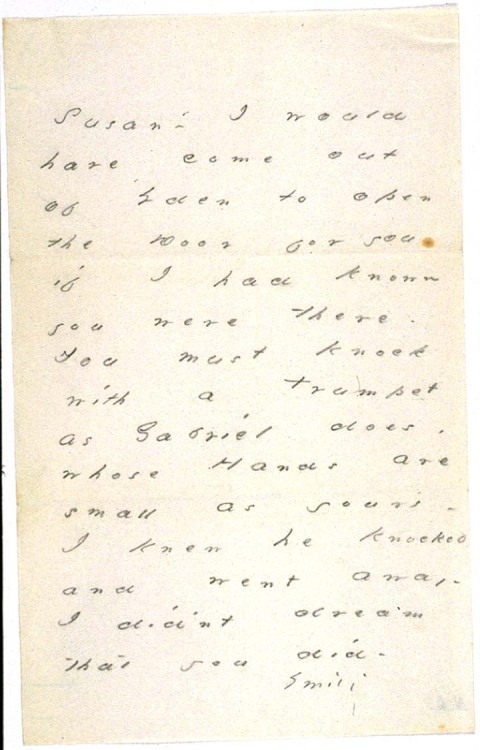 Susan - I would
have come out
of Eden to open
the Door for you
if I had known
you were there.
You must knock
with a Trumpet
as Gabriel does,
whose Hands are
small as yours -
I knew he knocked
and went away -
I did'nt dream
that you did -
Emily